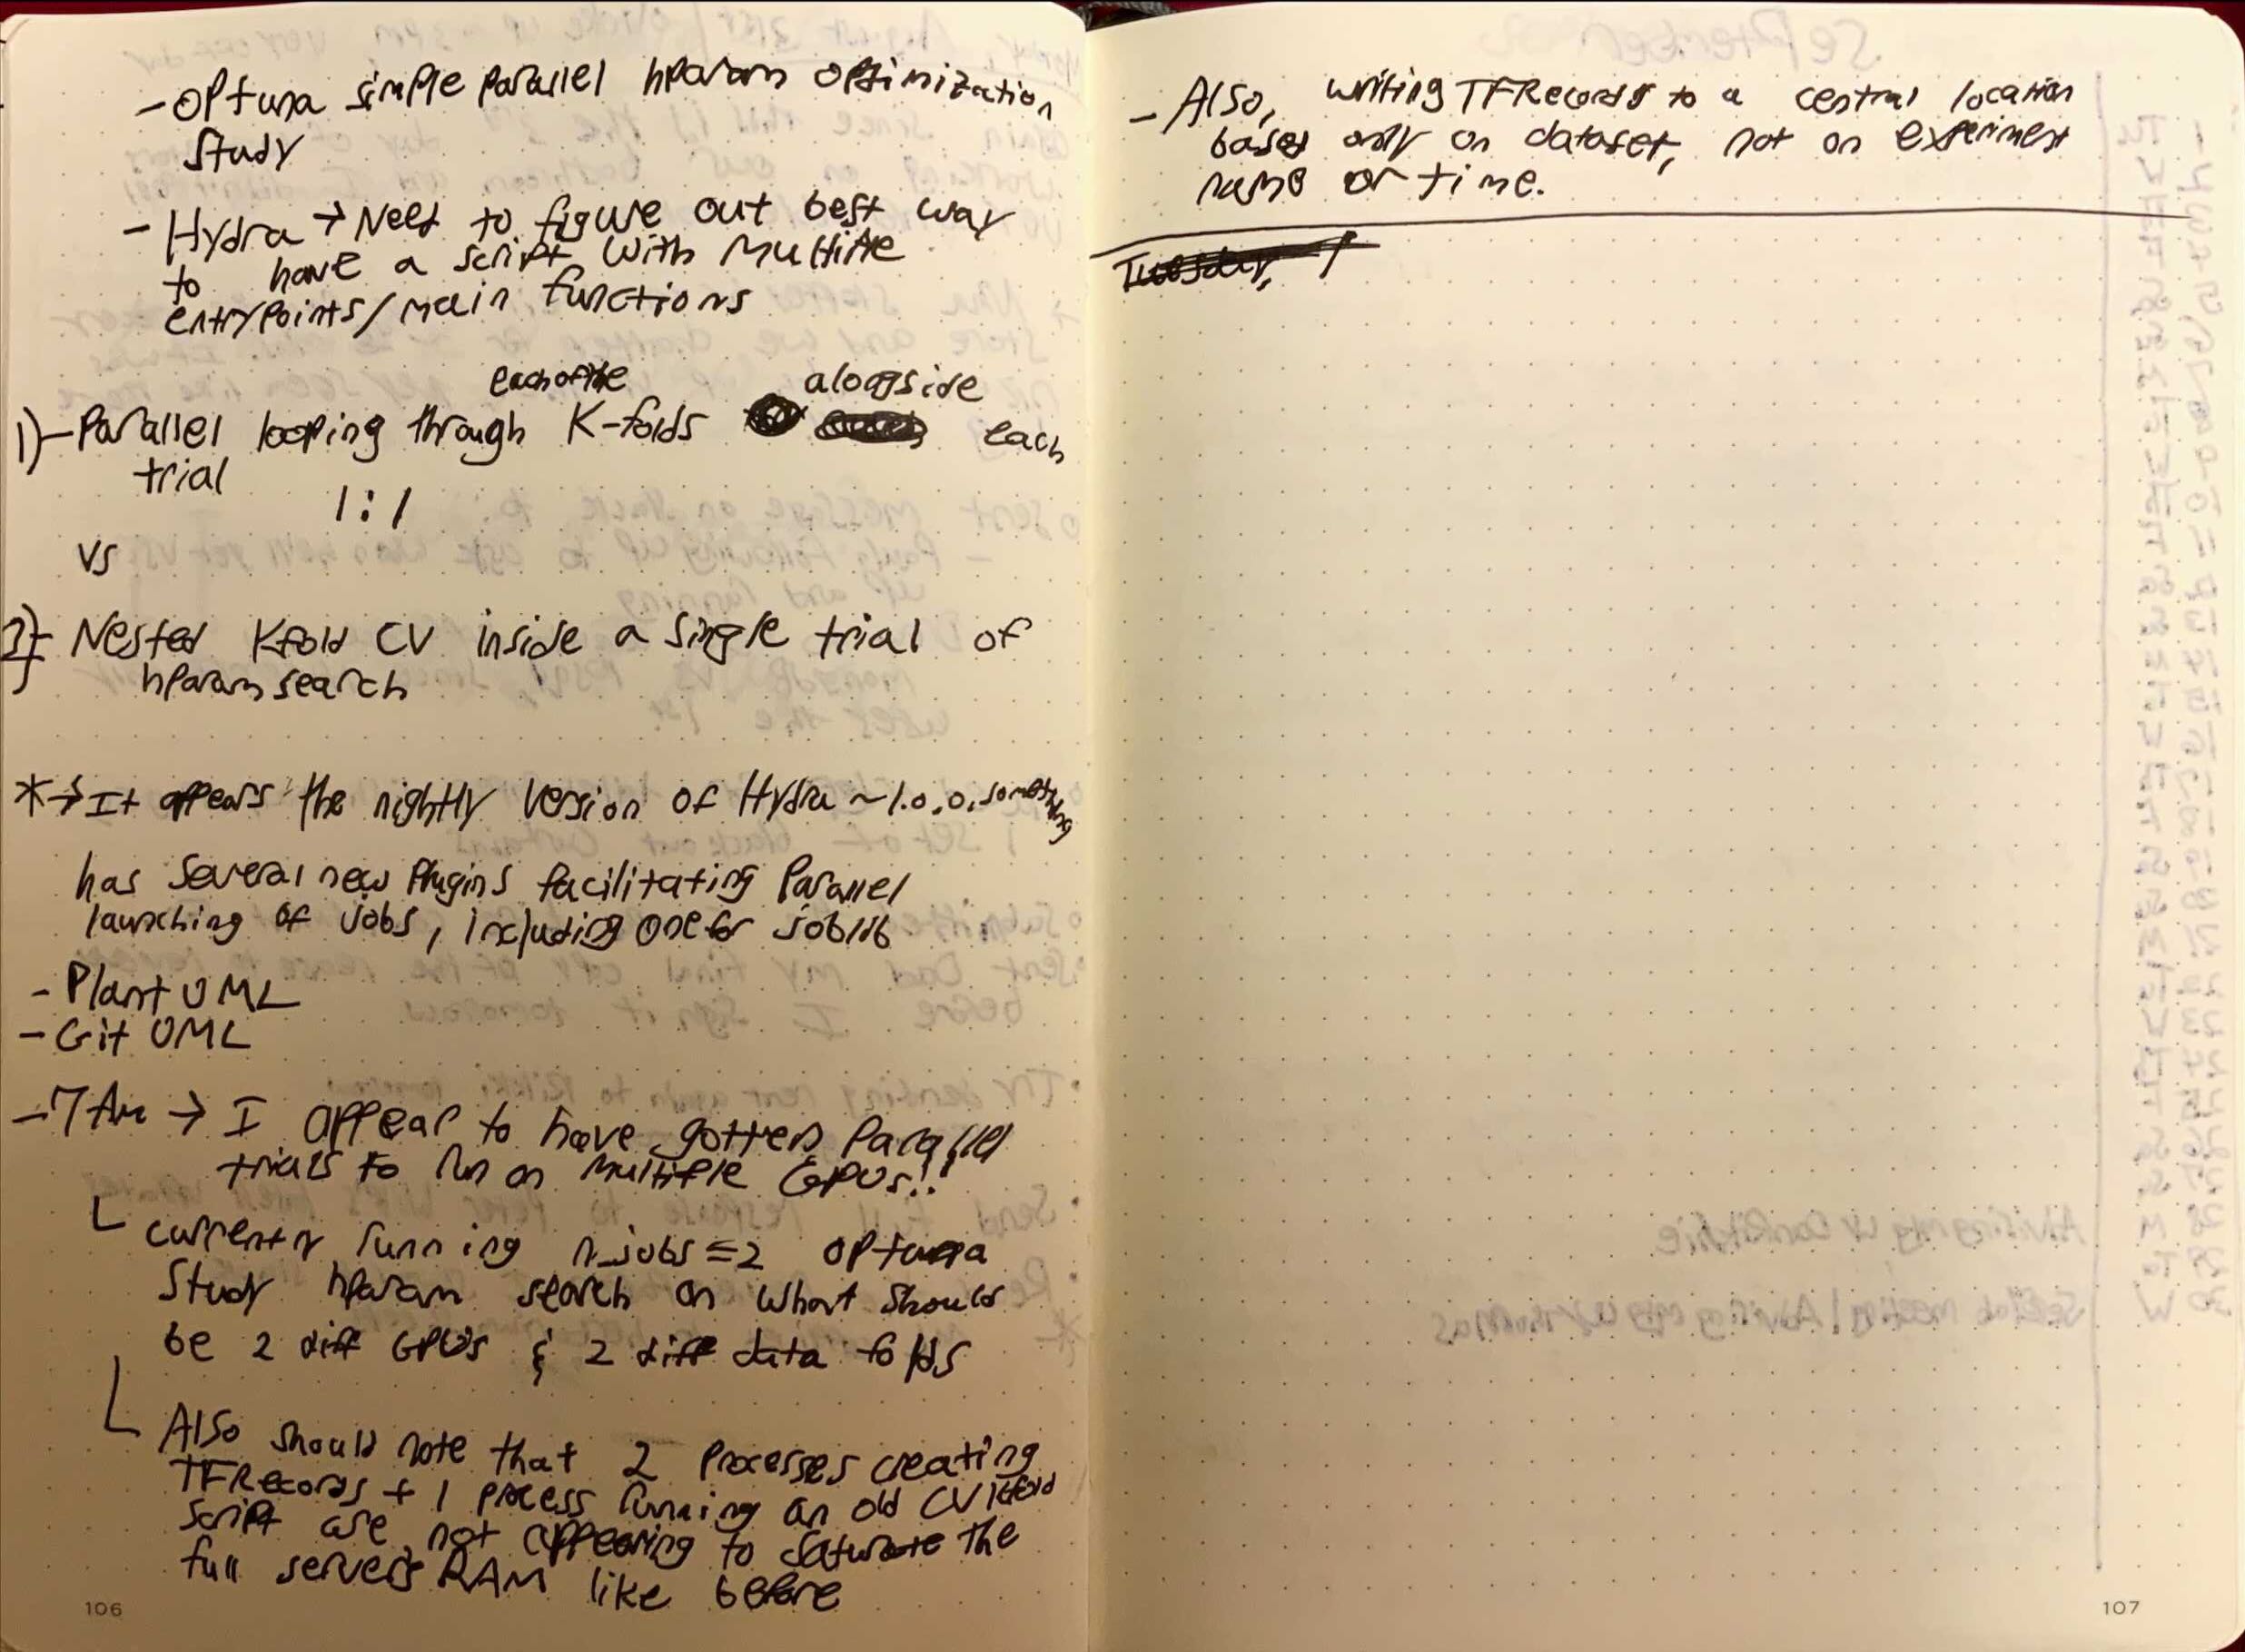 - Optuna simple parallel hparam optimization
study
- Hydra → Need to figure out best way
to have a script with multiple
entrypoints/main functions
each of the alongside
1) - Parallel looping through K-folds each
trial
1:1
vs
2) - Nested Kfold CV inside a single trial of
hparam search
* → It appears the nightly version of Hydra ~1.0.0.something
has several new plugins facilitating parallel
launching of jobs, including one for joblib
- Plant UML
- Git UML
- 7 Am → I appear to have gotten parallel
trials to run on multiple GPUs!!
currently running n_jobs=2 optuna
study hparam search on what should
be 2 diff GPUs & 2 diff data folds
Also should note that 2 processes creating
TFRecords + 1 process running an old CV kfold
script are not appearing to saturate the
full servers RAM like before
106
- Also, writing TFRecords to a central location
based only on dataset, not on experiment
name or time.
Tuesday,
107